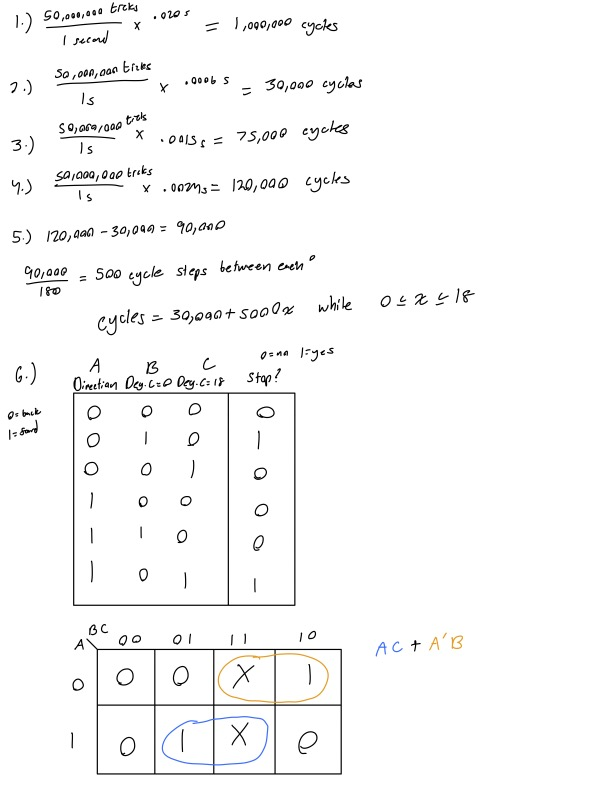 1.) 50,000,000 ticks / 1 second x .020 s = 1,000,000 cycles
2.) 50,000,000 ticks / 1s x .0006 s = 30,000 cycles
3.) 50,000,000 ticks / 1s x .0015 s = 75,000 cycles
4.) 50,000,000 ticks / 1s x .0024s = 120,000 cycles
5.) 120,000 - 30,000 = 90,000
90,000 / 180 = 500 cycle steps between each °
cycles = 30,000 + 5000x while 0 ≤ x ≤ 18
6.) A B C 0=no 1=yes
Direction Deg.C=0 Deg.C=18 Stop?
0=back
1=forward
0 0 0 0
0 1 0 1
0 0 1 0
1 0 0 0
1 1 0 0
1 0 1 1
A\BC 00 01 11 10
0 0 0 X 1
1 0 1 X 0
AC + A'B